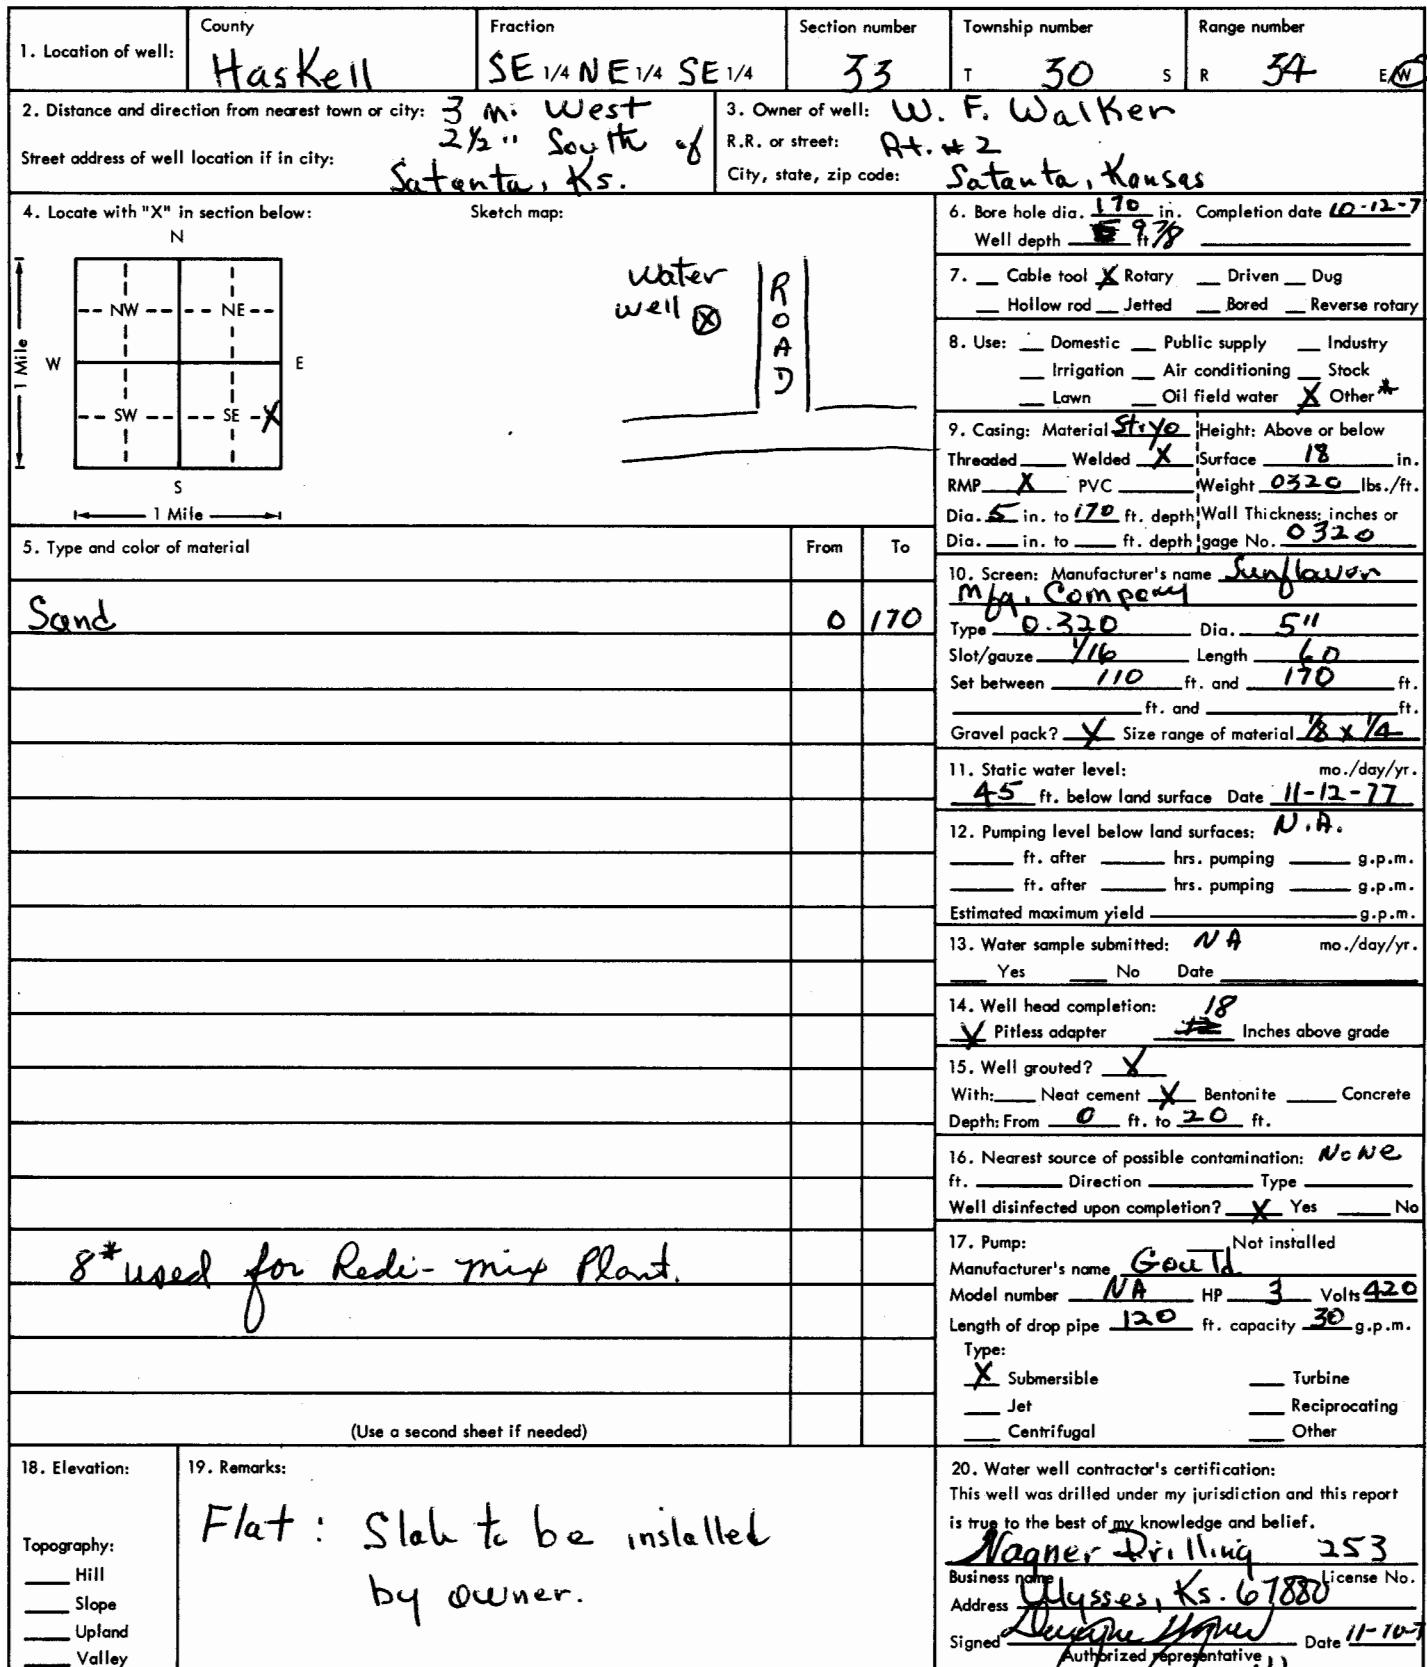 1. Location of well: County Haskell Fraction SE 1/4 NE 1/4 SE 1/4 Section number 33 Township number T 30 S Range number R 34 E/W
2. Distance and direction from nearest town or city: 3 mi West
2½ " South of
Street address of well location if in city: Satanta, Ks.
3. Owner of well: W. F. Walker
R.R. or street: Rt. #2
City, state, zip code: Satanta, Kansas
4. Locate with "X" in section below: Sketch map:
N
NW NE
W E
1 Mile
SW SE X
S
1 Mile
Water
well ⊗
ROAD
5. Type and color of material From To
Sand 0 170
8* used for Redi-mix Plant.
(Use a second sheet if needed)
6. Bore hole dia. 170 in. Completion date 10-12-7
Well depth 9 7/8 ft
7. Cable tool X Rotary Driven Dug
Hollow rod Jetted Bored Reverse rotary
8. Use: Domestic Public supply Industry
Irrigation Air conditioning Stock
Lawn Oil field water X Other *
9. Casing: Material Height: Above or below
Threaded Welded X Surface 18 in.
RMP X PVC Weight 0320 lbs./ft.
Dia. 5 in. to 170 ft. depth Wall Thickness: inches or
Dia. in. to ft. depth gage No. 0320
10. Screen: Manufacturer's name Sunflower
Mfg. Company
Type 0.320 Dia. 5"
Slot/gauze 1/16 Length 60
Set between 110 ft. and 170 ft.
ft. and ft.
Gravel pack? X Size range of material 1/8 x 1/4
11. Static water level: mo./day/yr.
45 ft. below land surface Date 11-12-77
12. Pumping level below land surfaces: N.A.
ft. after hrs. pumping g.p.m.
ft. after hrs. pumping g.p.m.
Estimated maximum yield g.p.m.
13. Water sample submitted: NA mo./day/yr.
Yes No Date
14. Well head completion: 18
X Pitless adapter Inches above grade
15. Well grouted? X
With: Neat cement X Bentonite Concrete
Depth: From 0 ft. to 20 ft.
16. Nearest source of possible contamination: None
ft. Direction Type
Well disinfected upon completion? X Yes No
17. Pump: Not installed
Manufacturer's name Gould
Model number NA HP 3 Volts 420
Length of drop pipe 120 ft. capacity 30 g.p.m.
Type:
X Submersible Turbine
Jet Reciprocating
Centrifugal Other
18. Elevation:
Topography:
Hill
Slope
Upland
Valley
19. Remarks:
Flat: Slab to be installed
by owner.
20. Water well contractor's certification:
This well was drilled under my jurisdiction and this report
is true to the best of my knowledge and belief.
Wagner Drilling 253
Business name License No.
Address Ulysses, Ks. 67880
Signed Date 11-10-7
Authorized representative